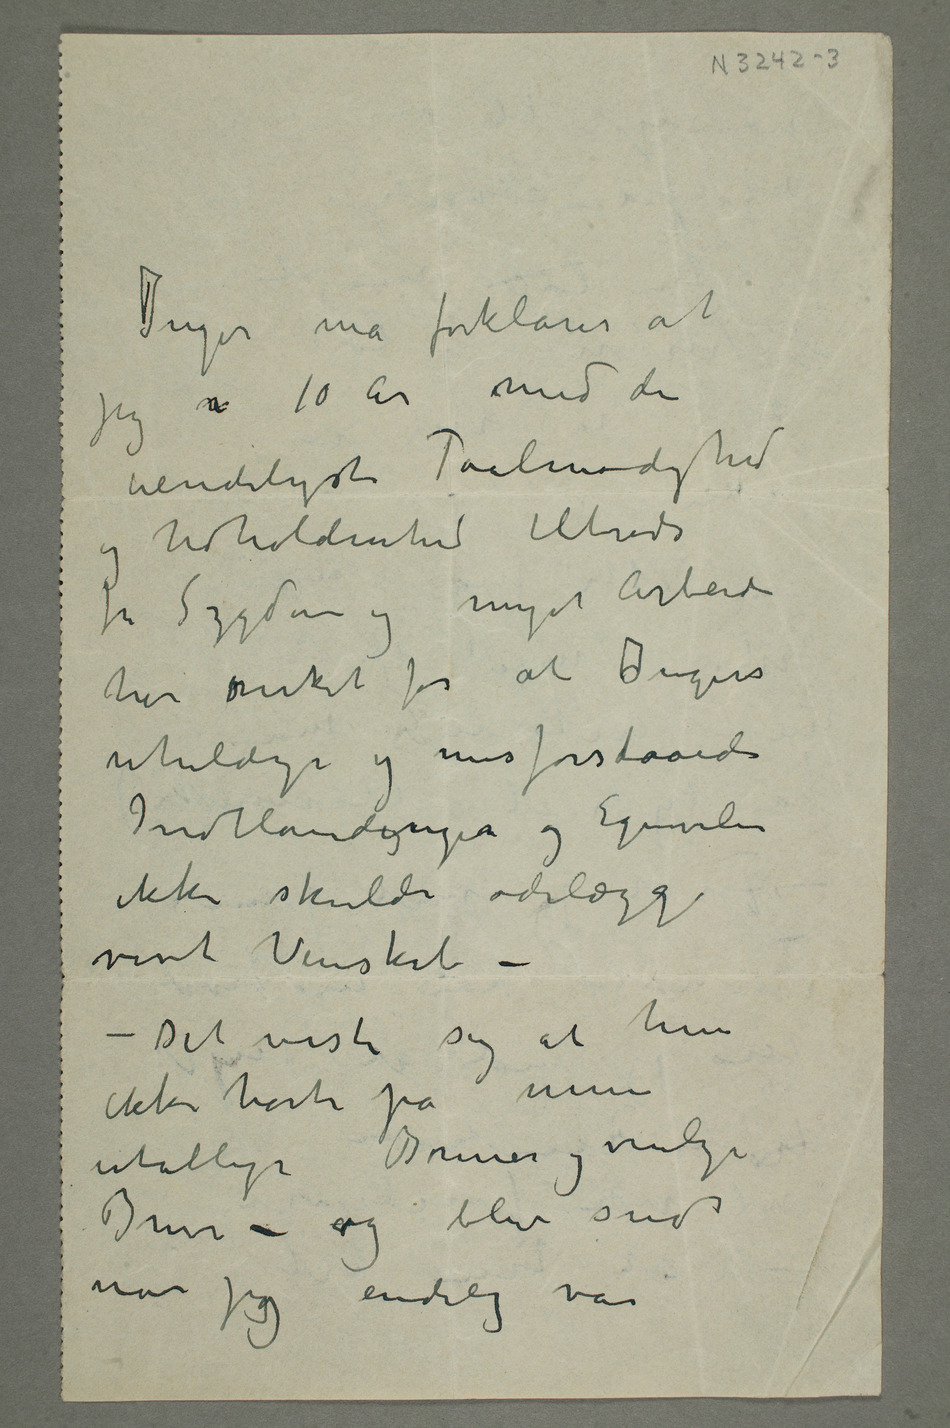 N 3242-3
Inger må forklares at
jeg i 10 år med den
uendeligste Taalmodighed
og Udholdenhed tiltrods
for Sygdom og meget Arbeide
har virket for at Ingers
uheldige og misforstaaede
Indblandinger og Egenvilie
ikke skulde ødelægge
vort Venskab –
– Det viste sig at hun
ikke hørte på mine
utallige Bønner og venlige
Breve – og blev sind
når jeg endelig var